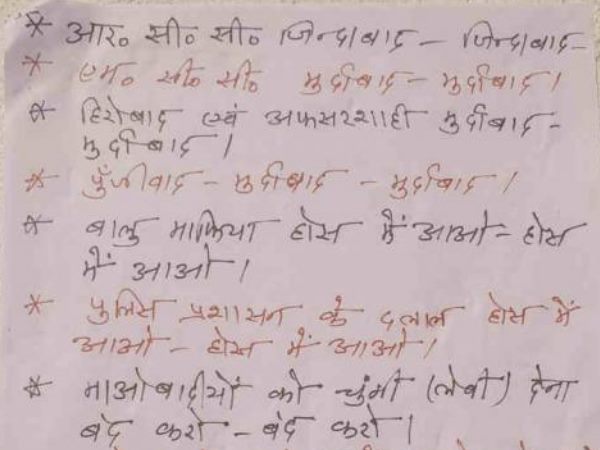 * आर॰ सी॰ सी॰ जिन्दाबाद - जिन्दाबाद -
* एम॰ सी॰ सी॰ मुर्दाबाद - मुर्दाबाद।
* हिरोबाद एवं अफसरशाही मुर्दाबाद -
मुर्दाबाद।
* पुँजीबाद - मुर्दाबाद - मुर्दाबाद।
* बालु माफिया होस में आओ - होस
में आओ।
* पुलिस प्रशासन के दलाल होस में
आओ - होस में आओ।
* माओबादीयों को चुंगी (लेबी) देना
बंद करो - बंद करो।